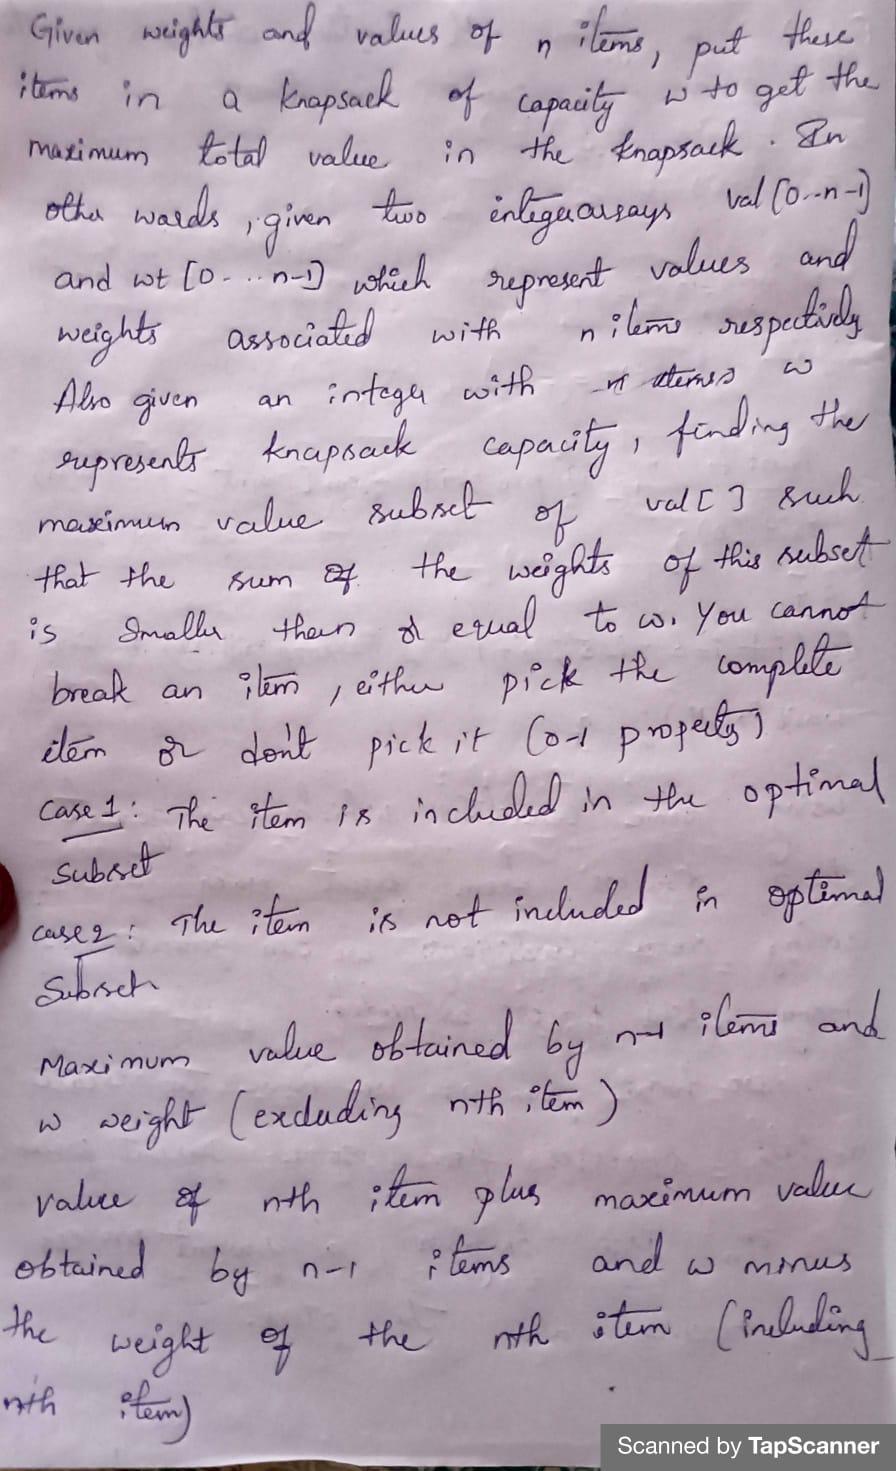 Given weights and values of n items, put these
items in a knapsack of capacity w to get the
maximum total value in the knapsack. In
other words, given two integer arrays val [0..n-1]
and wt [0....n-1] which represent values and
weights associated with n items respectively
Also given an integer with w
represents knapsack capacity, finding the
maximum value subset of val[ ] such
that the sum of the weights of this subset
is smaller than or equal to w. You cannot
break an item, either pick the complete
item or don't pick it (0-1 property)
case 1: The item is included in the optimal
subset
case 2: The item is not included in optimal
subset
Maximum value obtained by n-1 items and
w weight (excluding nth item)
value of nth item plus maximum value
obtained by n-1 items and w minus
the weight of the nth item (including
nth item)
Scanned by TapScanner